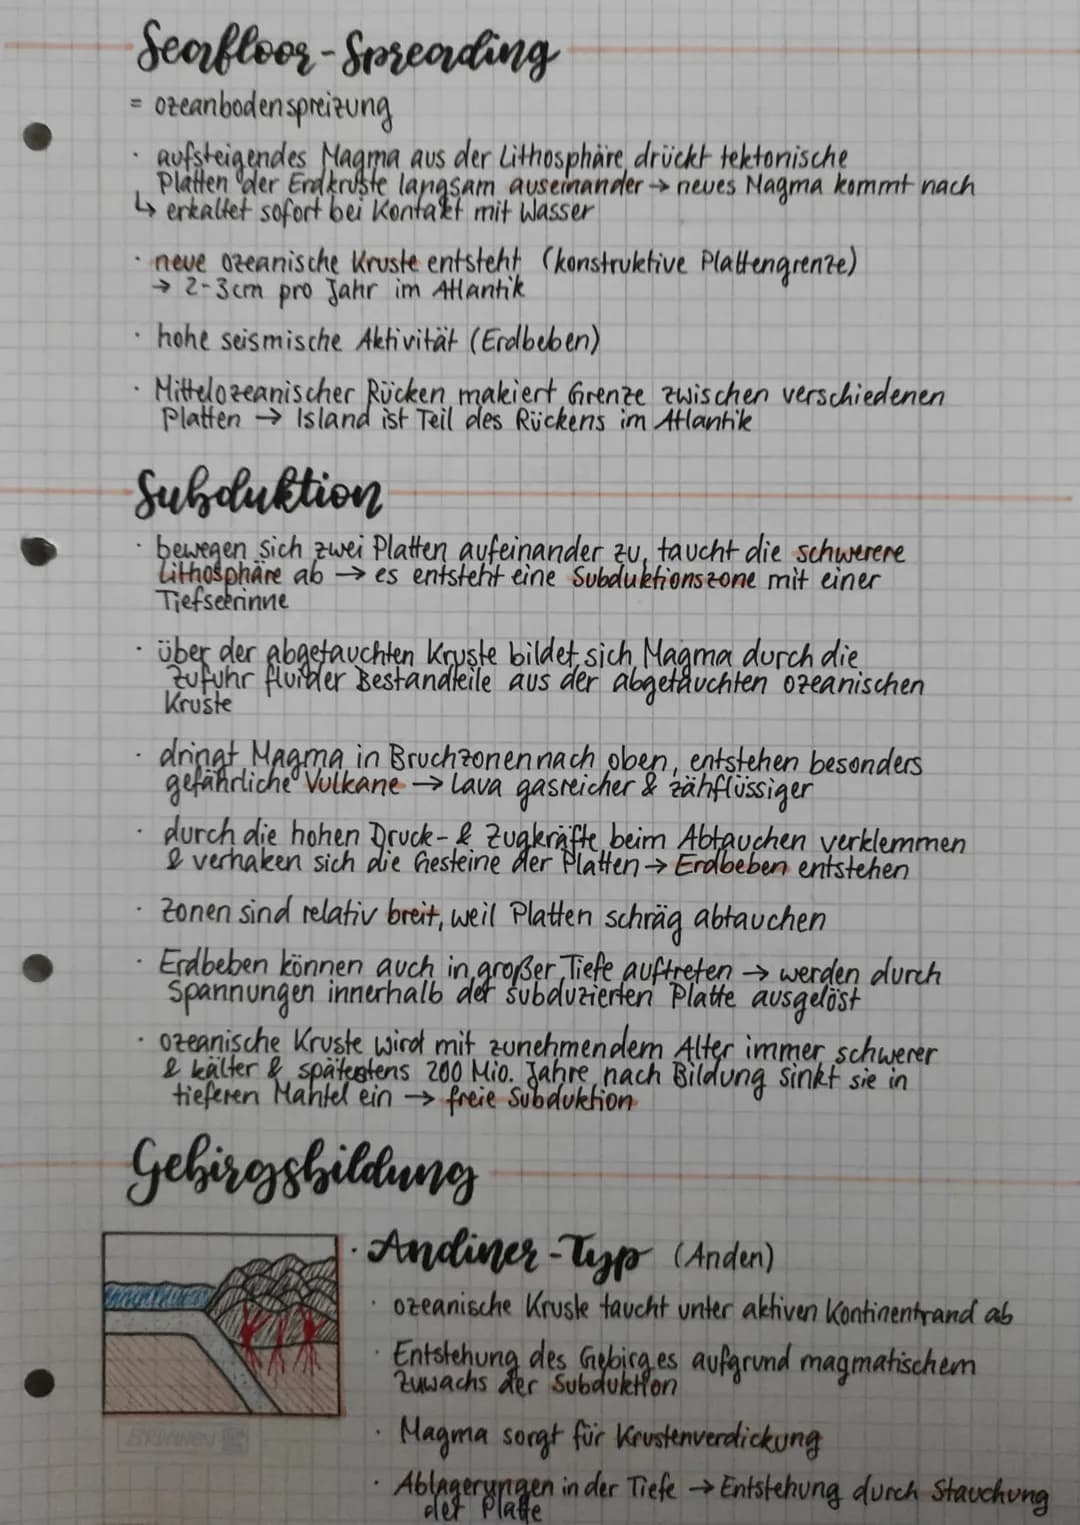 Seafloor-Spreading
= ozeanbodenspreizung
· aufsteigendes Magma aus der Lithosphäre drückt tektonische
Platten der Erdkruste langsam auseinander → neues Magma kommt nach
↳ erkaltet sofort bei Kontakt mit Wasser
· neue ozeanische Kruste entsteht (konstruktive Plattengrenze)
→ 2-3cm pro Jahr im Atlantik
· hohe seismische Aktivität (Erdbeben)
· Mittelozeanischer Rücken makiert Grenze zwischen verschiedenen
Platten → Island ist Teil des Rückens im Atlantik
Subduktion
· bewegen sich zwei Platten aufeinander zu, taucht die schwerere
Lithosphäre ab → es entsteht eine Subduktionszone mit einer
Tiefseerinne
· über der abgetauchten Kruste bildet sich Magma durch die
Zufuhr fluider Bestandteile aus der abgetauchten ozeanischen
Kruste
· dringt Magma in Bruchzonen nach oben, entstehen besonders
gefährliche Vulkane → Lava gasreicher & zähflüssiger
· durch die hohen Druck- & Zugkräfte beim Abtauchen verklemmen
& verhaken sich die Gesteine der Platten → Erdbeben entstehen
· Zonen sind relativ breit, weil Platten schräg abtauchen
· Erdbeben können auch in großer Tiefe auftreten → werden durch
Spannungen innerhalb der subduzierten Platte ausgelöst
· ozeanische Kruste wird mit zunehmendem Alter immer schwerer
& kälter & spätestens 200 Mio. Jahre nach Bildung sinkt sie in
tieferen Mantel ein → freie Subduktion
Gebirgsbildung
· Andiner-Typ (Anden)
· ozeanische Kruste taucht unter aktiven Kontinentrand ab
· Entstehung des Gebirges aufgrund magmatischem
Zuwachs der Subduktion
· Magma sorgt für Krustenverdickung
· Ablagerungen in der Tiefe → Entstehung durch Stauchung
der Platte